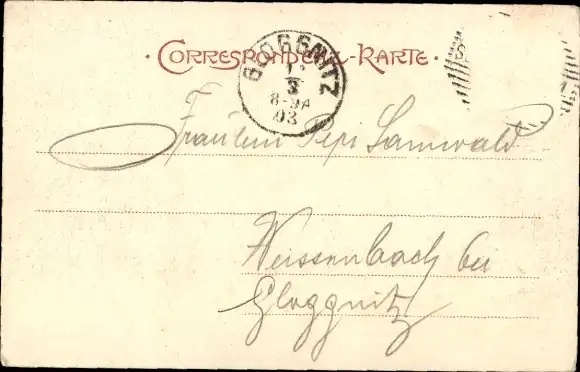 · CORRESPONDENZ-KARTE ·
GLOGGNITZ
3
03
Fräulein Pepi Samwald
Weissenbach bei
Gloggnitz